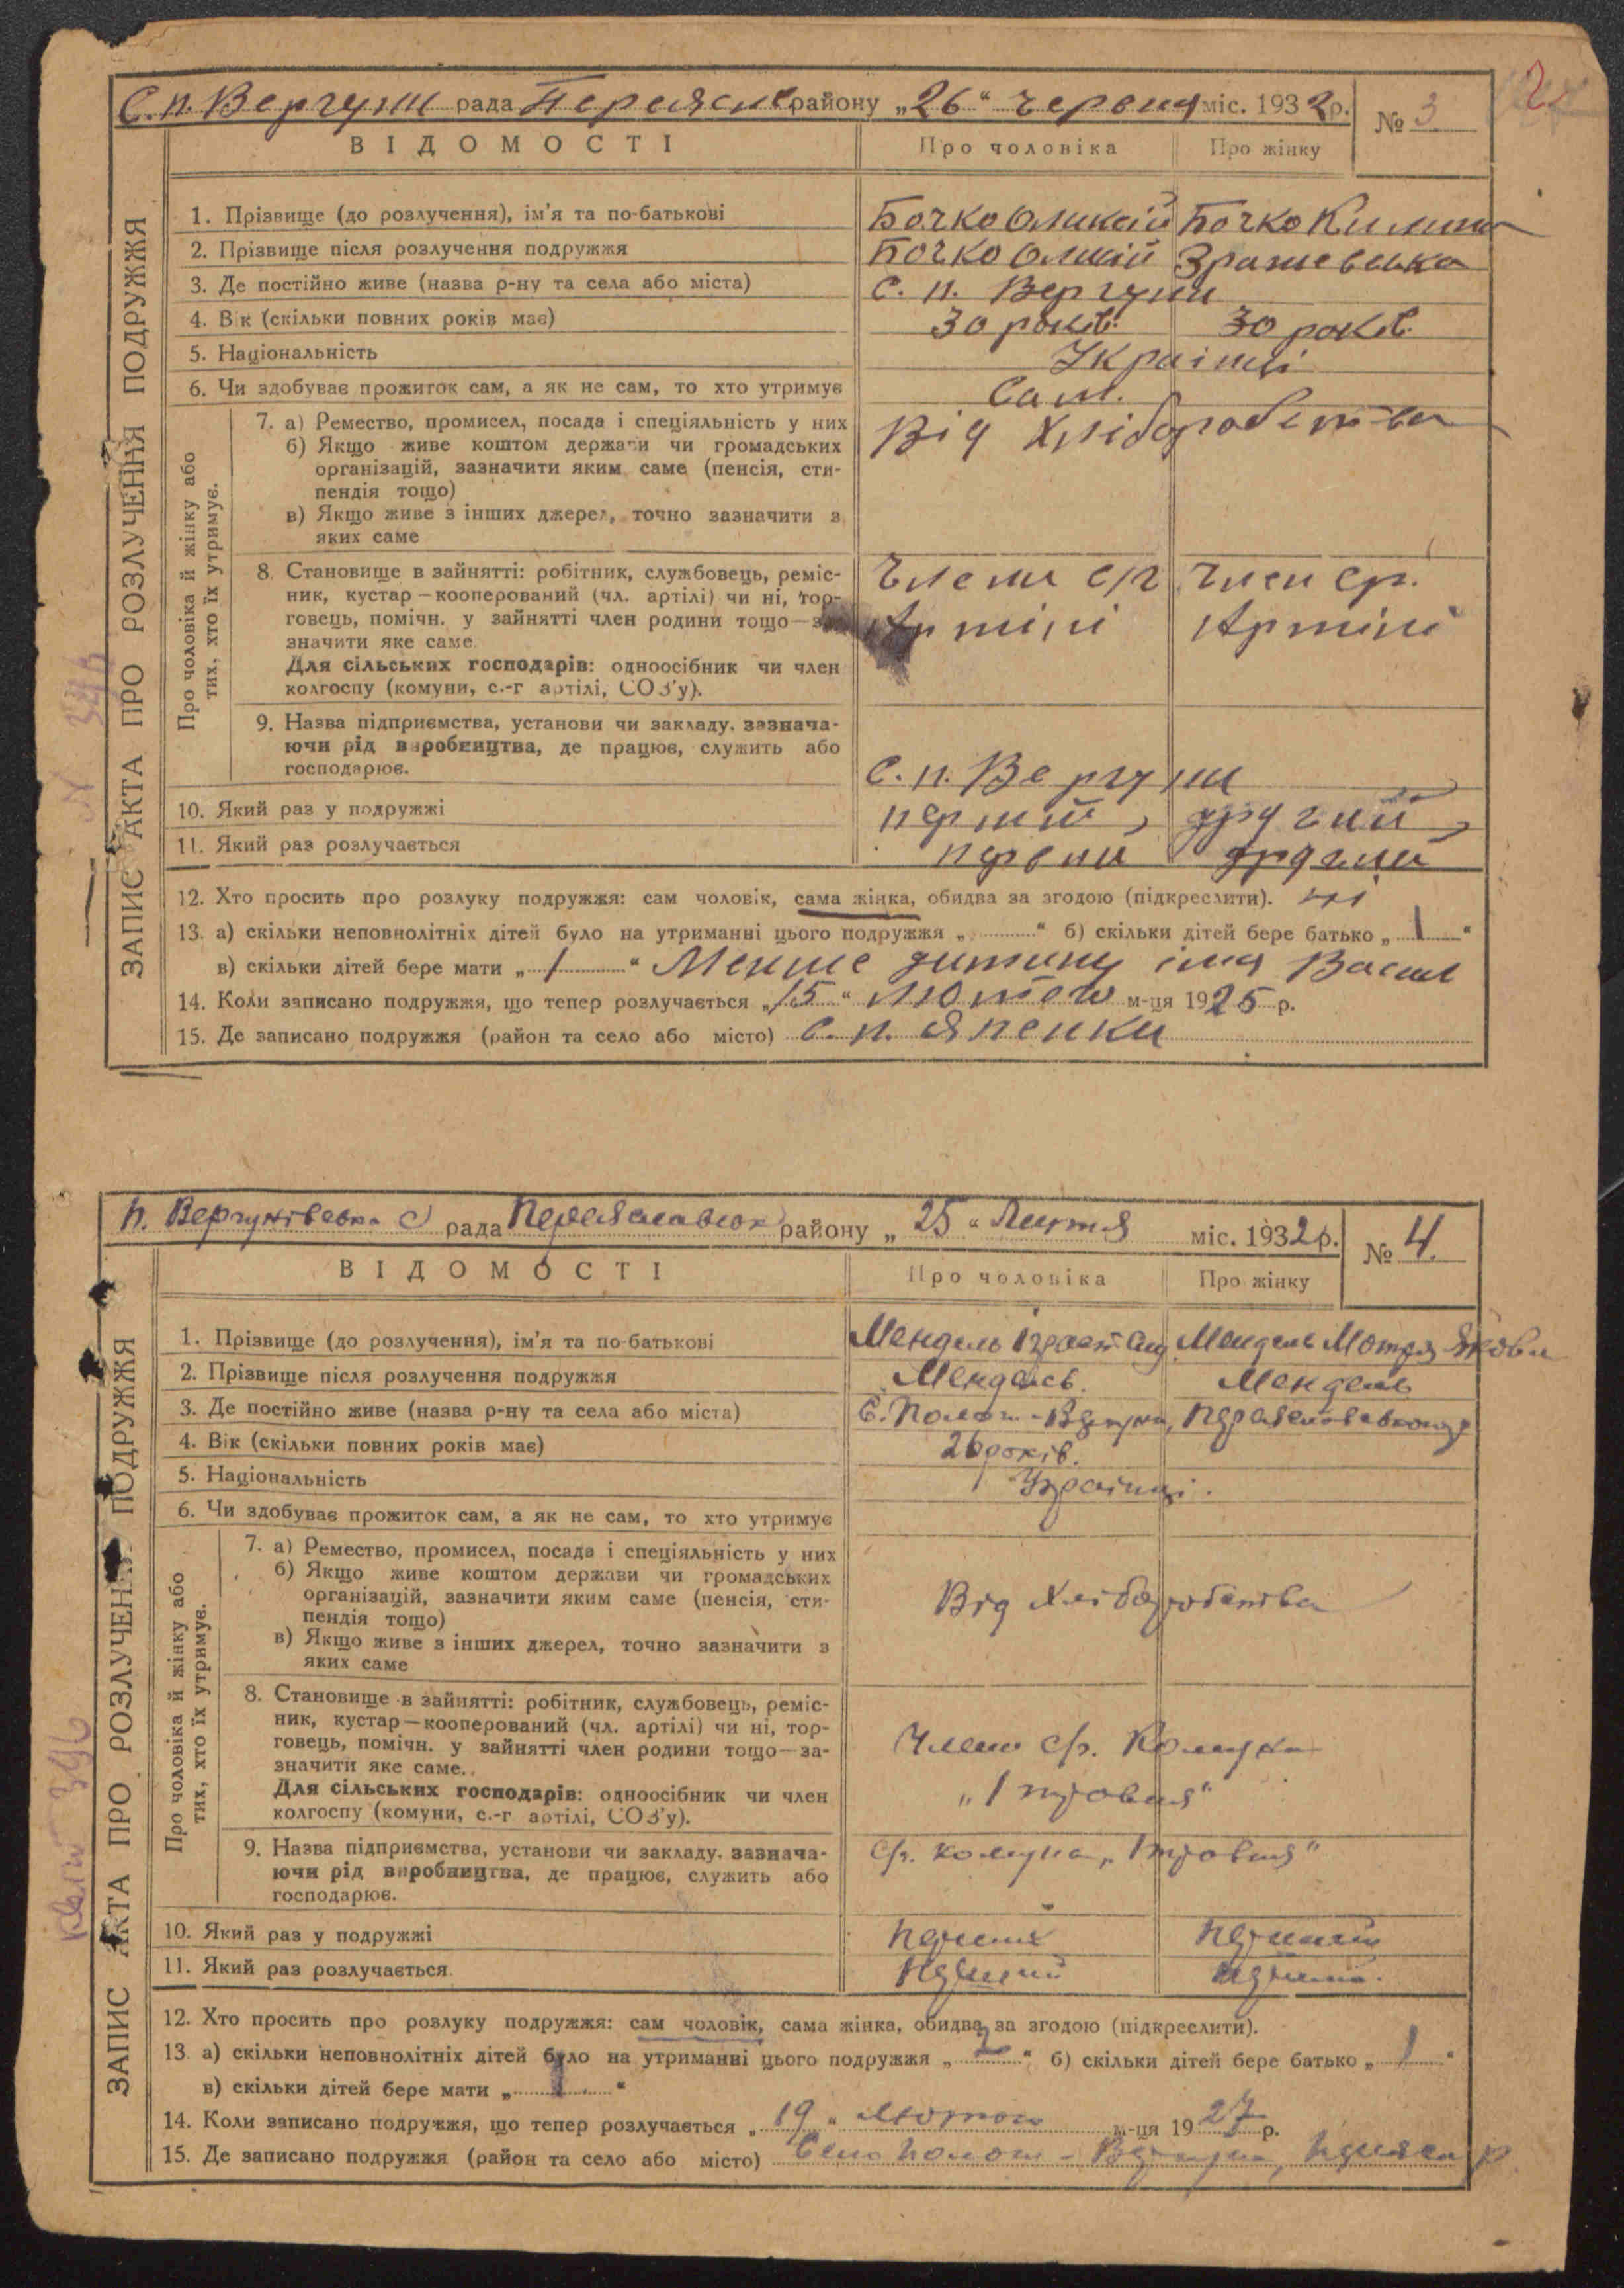 2
С.п. Вергуни рада Переяслв району „26“ червня міс. 1932р. № 3
ВІДОМОСТІ Про чоловіка Про жінку
ЗАПИС АКТА ПРО РОЗЛУЧЕННЯ ПОДРУЖЖЯ
1. Прізвище (до розлучення), ім'я та по-батькові Бочко Бочко
2. Прізвище після розлучення подружжя Бочко
3. Де постійно живе (назва р-ну та села або міста) С. п. Вергуни
4. Вік (скільки повних років має) 30 років. 30 років.
5. Національність Українці
6. Чи здобуває прожиток сам, а як не сам, то хто утримує Сам.
Про чоловіка й жінку або тих, хто їх утримує.
7. а) Ремество, промисел, посада і спеціяльність у них Від Хліборобства
б) Якщо живе коштом держави чи громадських
організацій, зазначити яким саме (пенсія, сти-
пендія тощо)
в) Якщо живе з інших джерел, точно зазначити з
яких саме
8. Становище в зайнятті: робітник, службовець, реміс- Члени с/г Член ср.
ник, кустар—кооперований (чл. артілі) чи ні, тор-
говець, помічн. у зайнятті член родини тощо—за- Артілі Артілі
значити яке саме.
Для сільських господарів: одноосібник чи член
колгоспу (комуни, с.-г артілі, СОЗ'у).
9. Назва підприємства, установи чи закладу, зазнача-
ючи рід виробництва, де працює, служить або
господарює. С. п. Вергуни
10. Який раз у подружжі перший, другий,
11. Який раз розлучається первий другий
12. Хто просить про розлуку подружжя: сам чоловік, сама жінка, обидва за згодою (підкреслити).
13. а) скільки неповнолітніх дітей було на утриманні цього подружжя „ “ б) скільки дітей бере батько „ 1 “
в) скільки дітей бере мати „ 1 “ Менше дитину імя
14. Коли записано подружжя, що тепер розлучається „15“ Лютого м-ця 1925 р.
15. Де записано подружжя (район та село або місто) С. п. Япенки
п. Вергунівська с рада Переяславськ району „ 25 “ міс. 1932р. № 4.
ВІДОМОСТІ Про чоловіка Про жінку
ЗАПИС АКТА ПРО РОЗЛУЧЕННЯ ПОДРУЖЖЯ
1. Прізвище (до розлучення), ім'я та по-батькові Мендель Мендель Мотря Яковл
2. Прізвище після розлучення подружжя Мендель. Мендель
3. Де постійно живе (назва р-ну та села або міста) С. Полог-Вергуни,
4. Вік (скільки повних років має) 26 років.
5. Національність Українці.
6. Чи здобуває прожиток сам, а як не сам, то хто утримує
Про чоловіка й жінку або тих, хто їх утримує.
7. а) Ремество, промисел, посада і спеціяльність у них
б) Якщо живе коштом держави чи громадських
організацій, зазначити яким саме (пенсія, сти- Від Хліборобства
пендія тощо)
в) Якщо живе з інших джерел, точно зазначити з
яких саме
8. Становище в зайнятті: робітник, службовець, реміс-
ник, кустар—кооперований (чл. артілі) чи ні, тор-
говець, помічн. у зайнятті член родини тощо—за- Член Комуни
значити яке саме.
Для сільських господарів: одноосібник чи член „1 травня“
колгоспу (комуни, с.-г артілі, СОЗ'у).
9. Назва підприємства, установи чи закладу, зазнача- комуна „1 травня“
ючи рід виробництва, де працює, служить або
господарює.
10. Який раз у подружжі перший перший
11. Який раз розлучається. перший перший.
12. Хто просить про розлуку подружжя: сам чоловік, сама жінка, обидва за згодою (підкреслити).
13. а) скільки неповнолітніх дітей було на утриманні цього подружжя „ 2 “ б) скільки дітей бере батько „ 1 “
в) скільки дітей бере мати „ 1 “
14. Коли записано подружжя, що тепер розлучається „ 19 “ Лютого м-ця 1927 р.
15. Де записано подружжя (район та село або місто) Село Полог-Вергуни, р